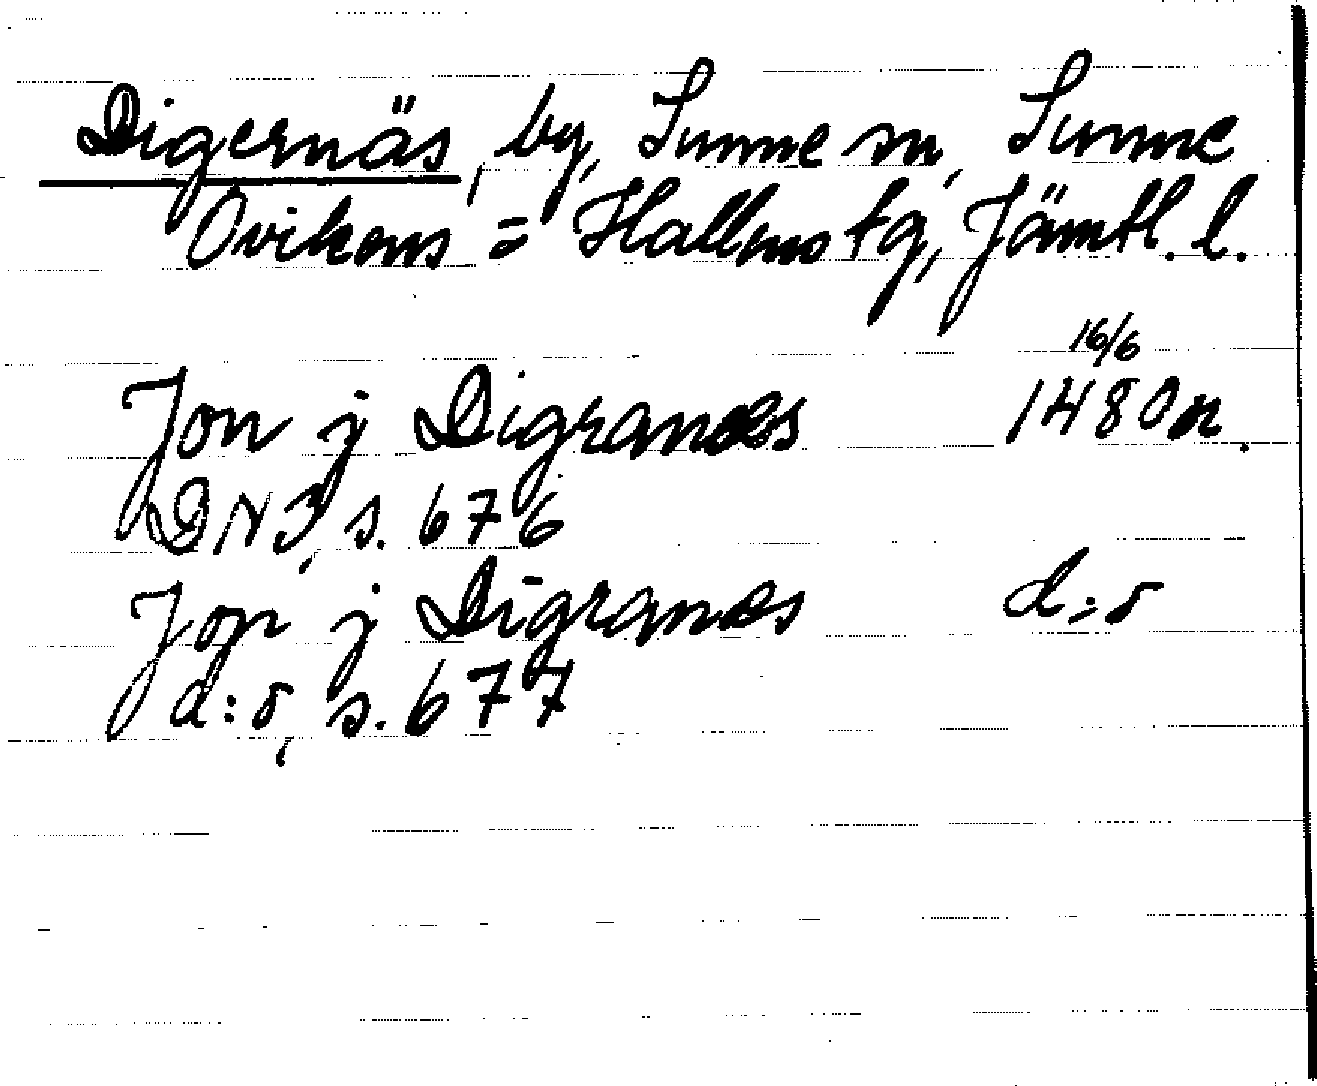 Digernäs, by, Sunne sn, Sunne
Ovikens = Hallens tg, Jämtl. l.
16/6
Jon j Digranæs 1480 n.
DN 3, s. 676
Jon j Digranæs d:o
d:o, s. 677